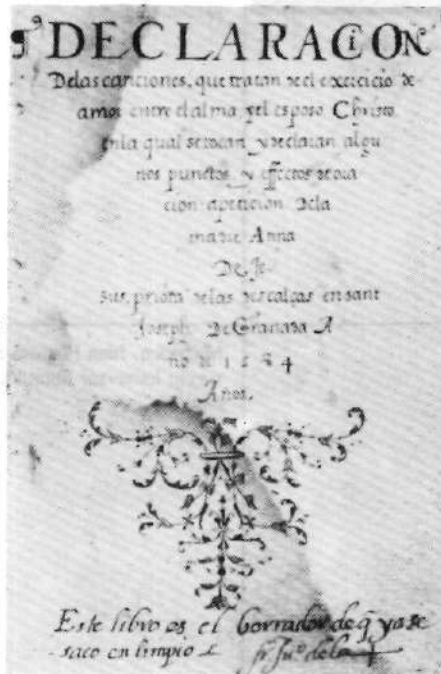 DECLARACION
De las canciones, que tratan de el exercicio de
amor entre el alma y el esposo Christo.
en la qual se tocan y declaran algu
nos punctos y effectos de ora
cion a peticion de la
madre Anna
De Je
sus, priora de las descalças en sant
Joseph De Granada A
ño de 1584
Años.
Este libro es el borrador de q̃ ya se
saco en limpio fr. Juº de la ┼